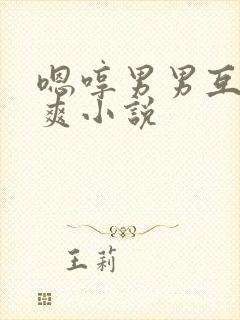 嗯哼男男互
爽小说
王莉